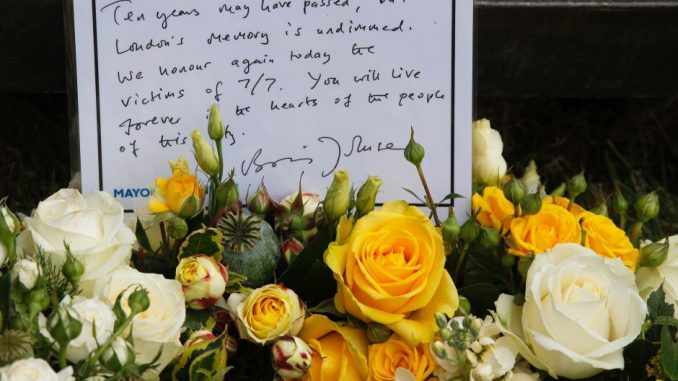 Ten years may have passed, but
London's memory is undimmed.
We honour again today the
victims of 7/7. You will live
forever in the hearts of the people
of this city.
Boris Johnson
MAYO